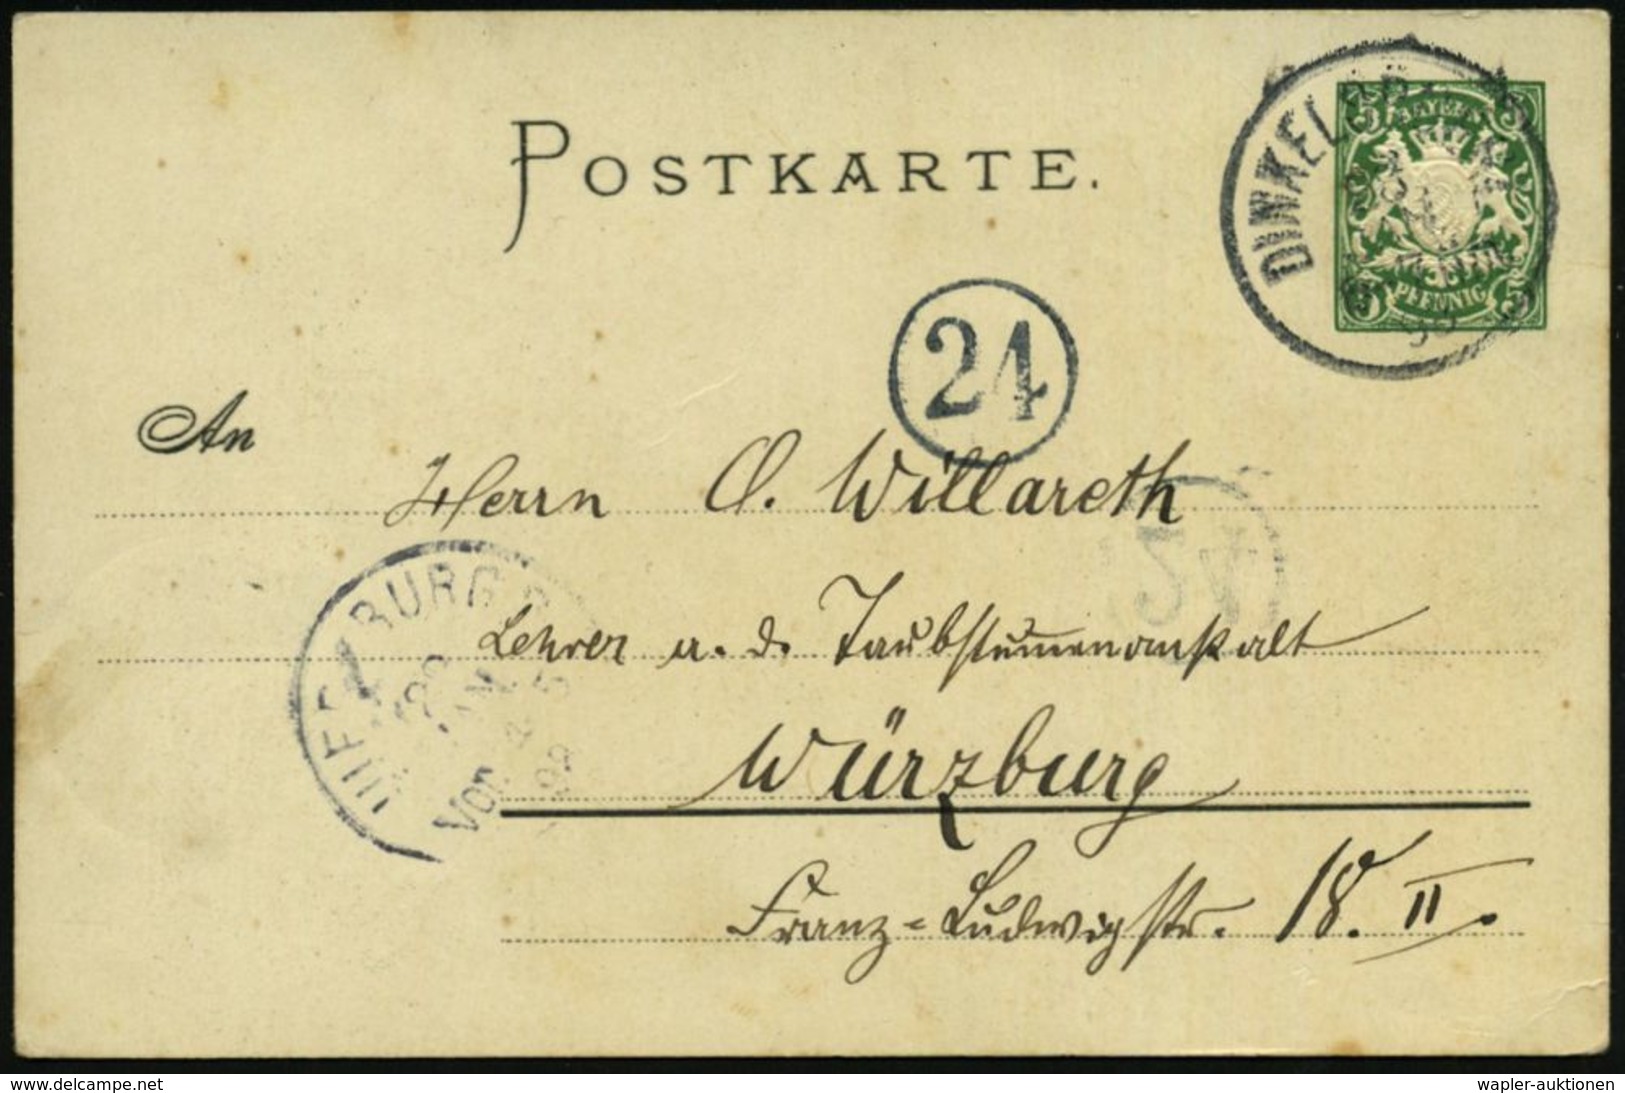 POSTKARTE.
BAYERN
5 5
PFENNIG
5 5
24
An
Herrn O. Willareth
Lehrer a. d. Taubstummenanstalt
Würzburg
Franz-Ludwigstr. 18. II.
Vor
delcampe.net
wapler-auktionen